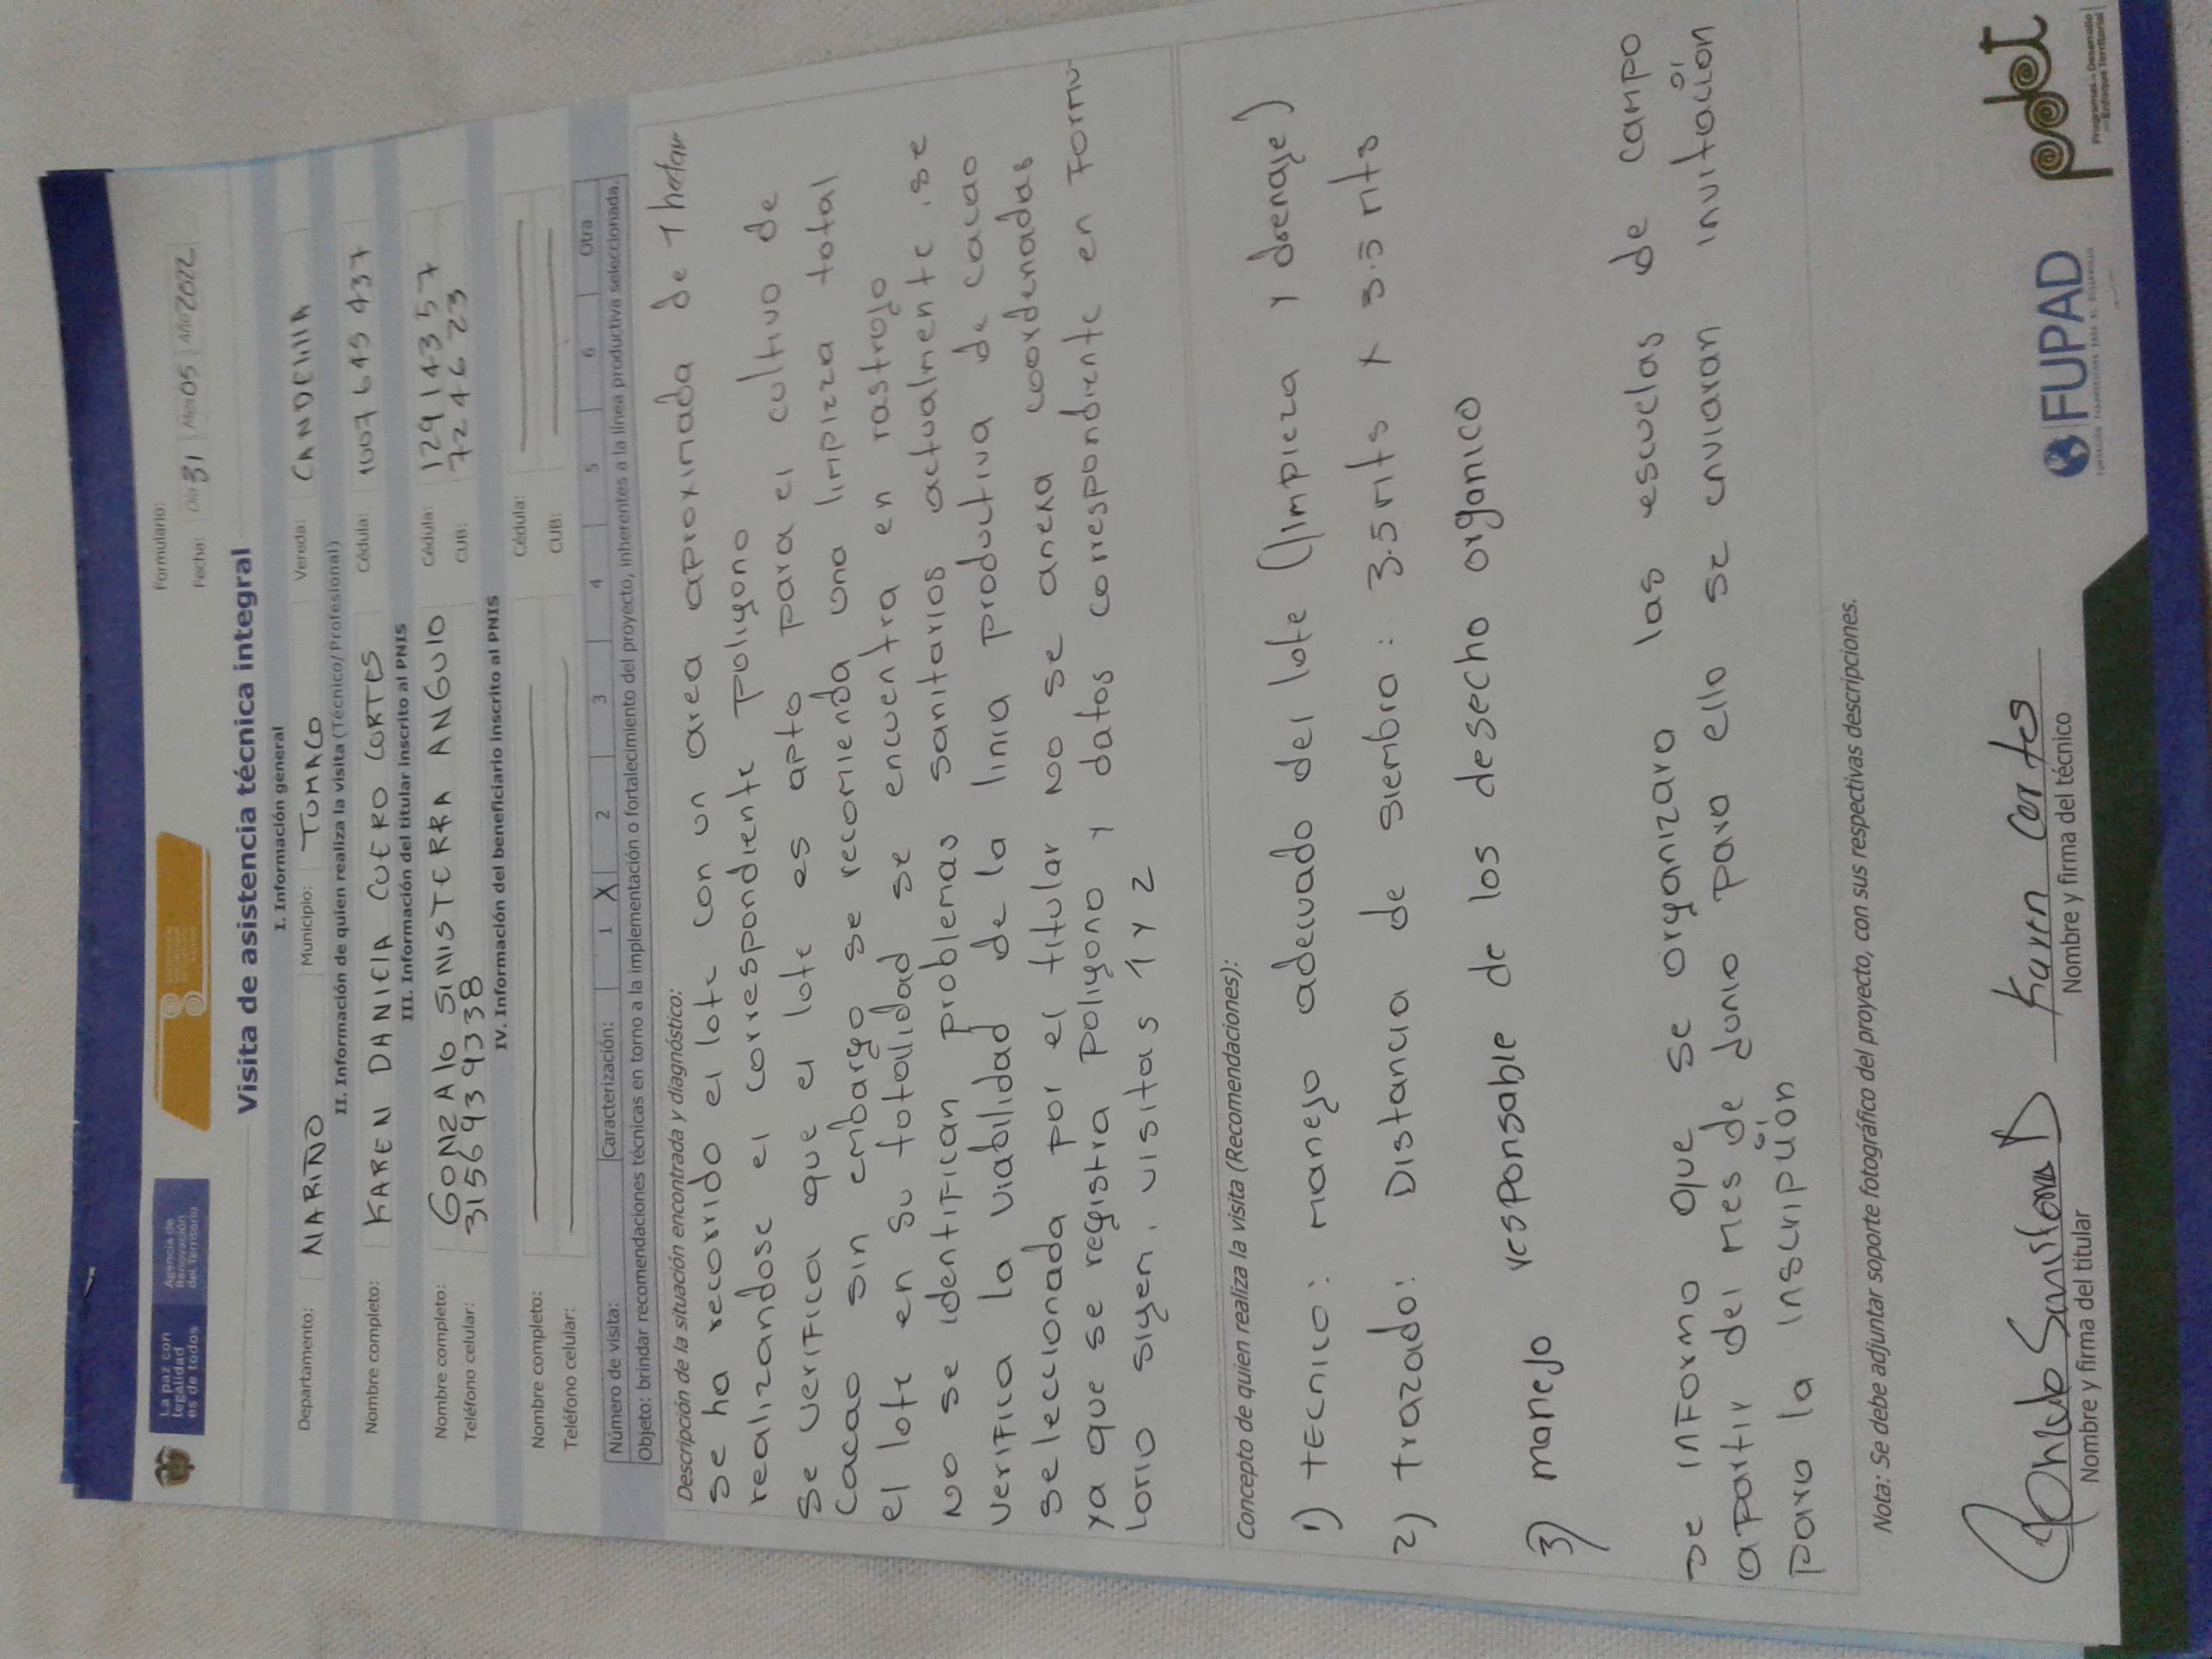 La paz con
legalidad
es de todos
Agencia de
Renovación
del Territorio
Formulario:
Fecha: Día 31 Mes 05 Año 2022
Visita de asistencia técnica integral
I. Información general
Departamento: NARIÑO Municipio: TUMACO Vereda: CANDElIllA
II. Información de quien realiza la visita (Técnico/Profesional)
Nombre completo: KAREN DANIElA CUERO CORTES Cédula: 1007 649 437
III. Información del titular inscrito al PNIS
Nombre completo: GONZAlO SINISTERRA ANGUlO Cédula: 129 143 57
Teléfono celular: 3156939338 CUB: 7224623
IV. Información del beneficiario inscrito al PNIS
Nombre completo: Cédula:
Teléfono celular: CUB:
Número de visita: Caracterización: 1 X 2 3 4 5 6 Otra
Objeto: brindar recomendaciones técnicas en torno a la implementación o fortalecimiento del proyecto, inherentes a la línea productiva seleccionada.
Descripción de la situación encontrada y diagnóstico:
se ha recorrido el lote con un area aproximada de 1 hectar
realizandose el correspondiente poligono
se verifica que el lote es apto para el cultivo de
cacao sin embargo se recomienda una limpieza total
el lote en su totalidad se encuentra en rastrojo
no se identifican problemas sanitarios actualmente, se
verifica la viabilidad de la linia productiva de cacao
seleccionada por el titular no se anexa coordenadas
ya que se registra poligono y datos correspondiente en formu-
lorio sigen, visitas 1 y 2
Concepto de quien realiza la visita (Recomendaciones):
1) tecnico: manejo adecuado del lote (limpieza y drenaje)
2) trazado: Distancia de siembra: 3.5 mts x 3.5 mts
3) manejo responsable de los desecho organico
se informo que se organizara las escuelas de campo
apartir del mes de junio para ello se enviaran invitación
para la inscripción
Nota: Se debe adjuntar soporte fotográfico del proyecto, con sus respectivas descripciones.
Karen Cortes
Nombre y firma del titular Nombre y firma del técnico
FUPAD
pdet
Programas de Desarrollo
con Enfoque Territorial